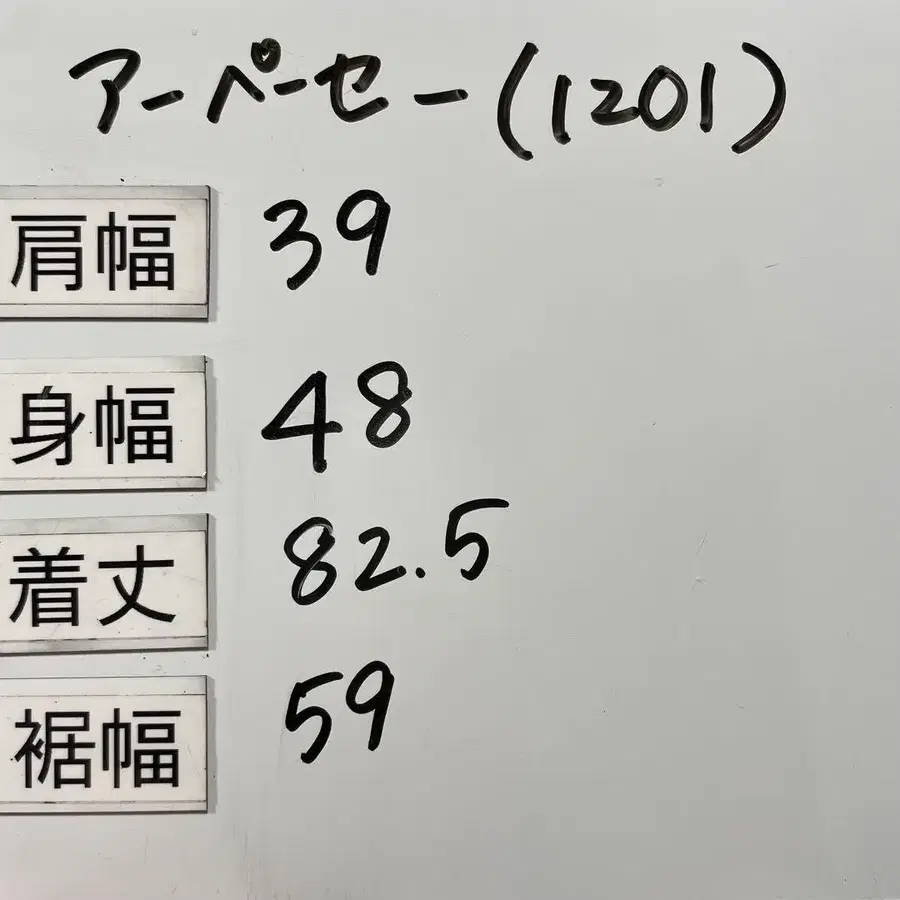 アーペーセー(1201)
肩幅 39
身幅 48
着丈 82.5
裾幅 59